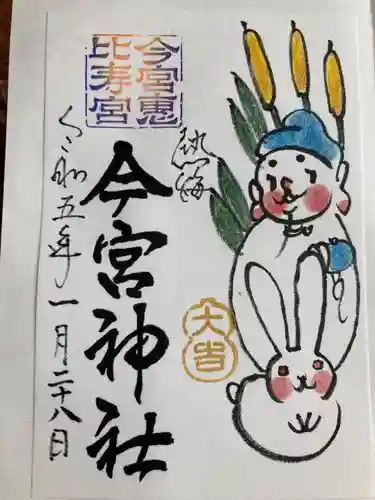 今宮恵
比寿宮
熱海
今宮神社
令和五年一月二十八日
大吉